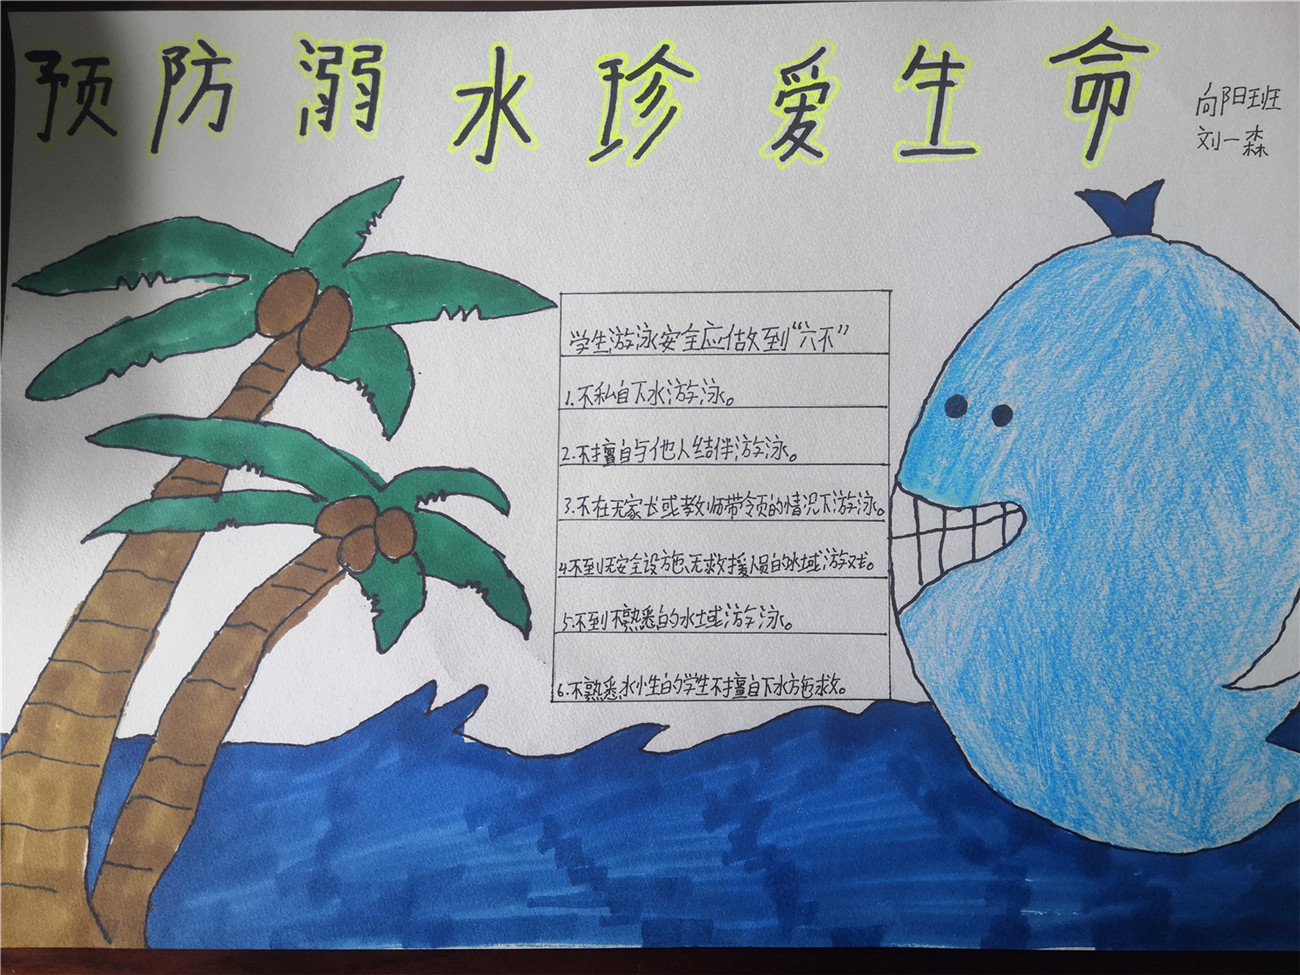 预防溺水珍爱生命
向阳班
刘一森
学生游泳安全应做到“六不”
1.不私自下水游泳。
2.不擅自与他人结伴游泳。
3.不在无家长或教师带领的情况下游泳。
4.不到无安全设施、无救援人员的水域游戏。
5.不到不熟悉的水域游泳。
6.不熟悉水性的学生不擅自下水施救。